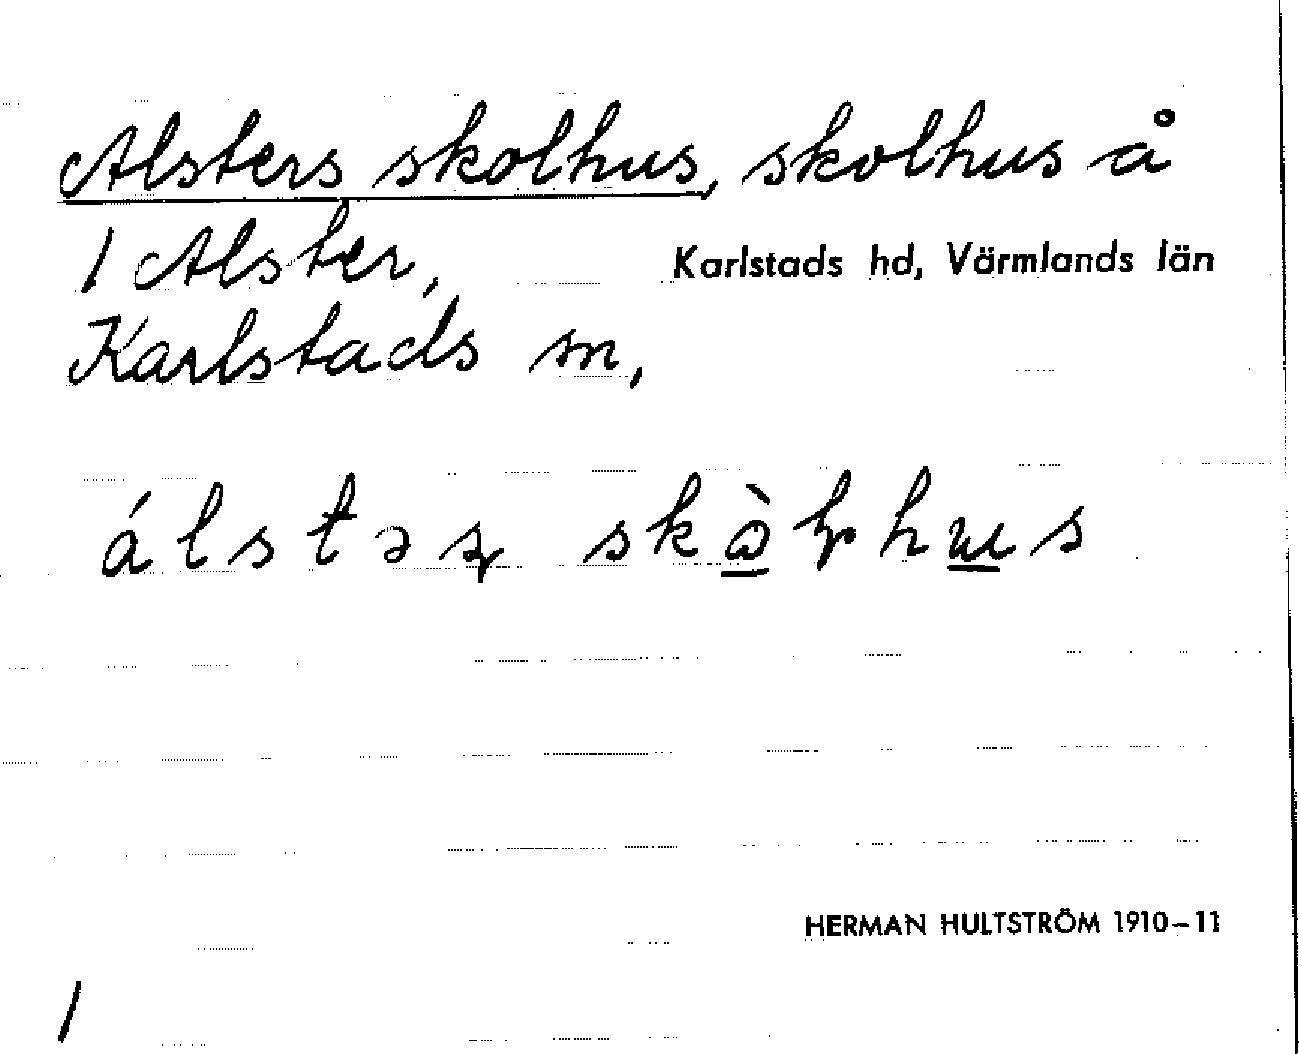 Alsters skolhus, skolhus å
1 Alster,
Karlstads hd, Värmlands län
Karlstads sn,
HERMAN HULTSTRÖM 1910–11
1